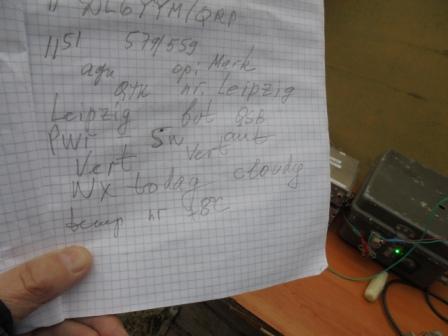 11 DL6YYM/QRP
11 51 579/559
agn op: Mark
QTH nr. Leipzig
Leipzig but QSB
PWr 5W ant
Vert Vert
WX today cloudy
temp nr 18C